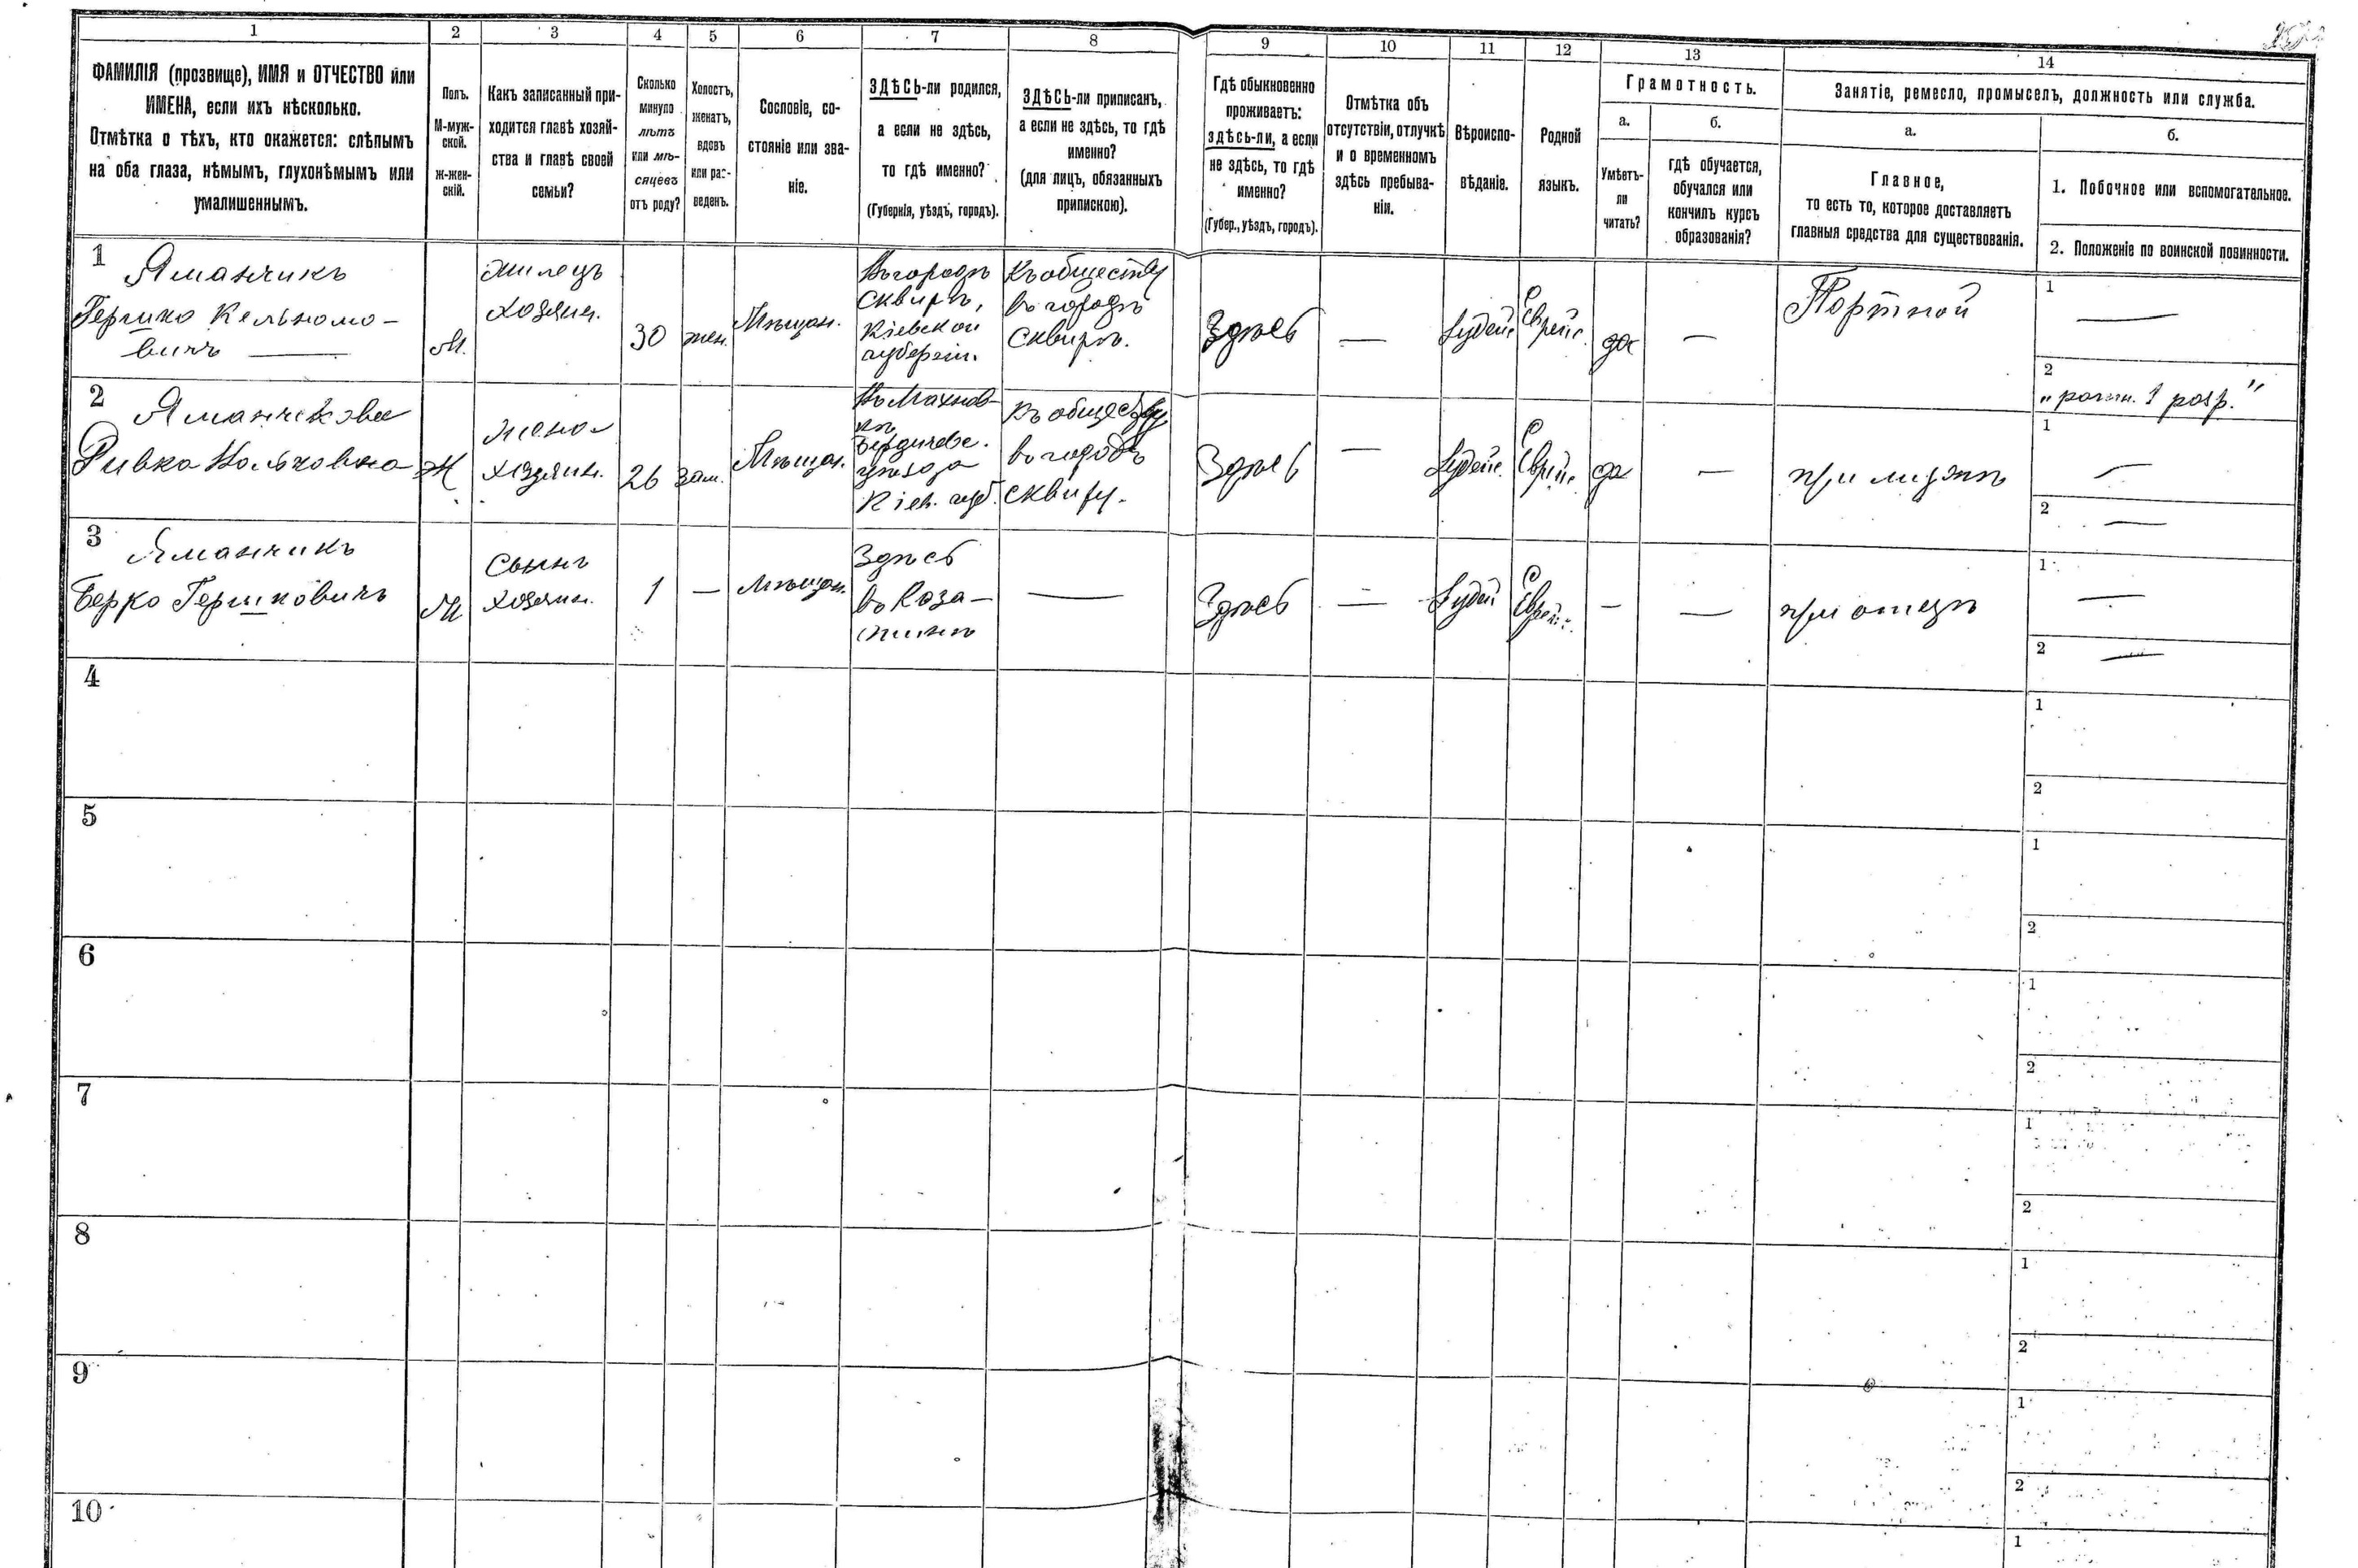 1
2
3
4
5
6
7
8
9
10
11
12
13
14
ФАМИЛІЯ (прозвище), ИМЯ и ОТЧЕСТВО или
ИМЕНА, если ихъ нѣсколько.
Отмѣтка о тѣхъ, кто окажется: слѣпымъ
на оба глаза, нѣмымъ, глухонѣмымъ или
умалишеннымъ.
Полъ.
М-муж-
ской.
ж-жен-
скій.
Какъ записанный при-
ходится главѣ хозяй-
ства и главѣ своей
семьи?
Сколько
минуло
лѣтъ
или мѣ-
сяцевъ
отъ роду?
Холостъ,
женатъ,
вдовъ
или раз-
веденъ.
Сословіе, со-
стояніе или зва-
ніе.
ЗДѢСЬ-ли родился,
а если не здѣсь,
то гдѣ именно?
(Губернія, уѣздъ, городъ).
ЗДѢСЬ-ли приписанъ,
а если не здѣсь, то гдѣ
именно?
(для лицъ, обязанныхъ
припискою).
Гдѣ обыкновенно
проживаетъ:
здѣсь-ли, а если
не здѣсь, то гдѣ
именно?
(Губер., уѣздъ, городъ).
Отмѣтка объ
отсутствіи, отлучкѣ
и о временномъ
здѣсь пребыва-
ніи.
Вѣроиспо-
вѣданіе.
Родной
языкъ.
Грамотность.
а.
Умѣетъ-
ли
читать?
б.
гдѣ обучается,
обучался или
кончилъ курсъ
образованія?
Занятіе, ремесло, промыселъ, должность или служба.
а.
Главное,
то есть то, которое доставляетъ
главныя средства для существованія.
б.
1. Побочное или вспомогательное.
2. Положеніе по воинской повинности.
1
Яманчикъ
Гершко Кельномо-
вичъ —
М.
жилецъ
хозяин.
30
жен.
Мѣщан.
Въ городѣ
Сквирѣ,
Кіевской
губерніи.
Къ обществу
въ городѣ
Сквирѣ.
Здѣсь
—
Іудейс.
Еврейс.
да
—
Портной
1
—
2
„ратн. 1 разр."
2
Яманчикова
Ривка
Ж
жена
хозяин.
26
зам.
Мѣщан.
Въ Махнов-
кѣ
Бердичевс.
уѣзда
Кіев. губ.
Къ обществу
въ городѣ
Сквиру.
Здѣсь
—
Іудейс.
Еврейс.
да
—
при мужѣ
1
—
2
—
3
Яманчикъ
Берко Гершковичъ
М
Сынъ
хозяин.
1
—
Мѣщан.
Здѣсь
въ Каза-
тинѣ
—
Здѣсь
—
Іудей
Еврейс.
—
—
при отцѣ
1
—
2
—
4
1
2
5
1
2
6
1
2
7
1
2
8
1
2
9
1
2
10
1